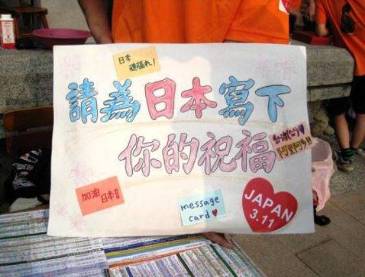 日本
頑張れ！
請為日本寫下
你的祝福
加油
日本!!
message
card
JAPAN
3.11